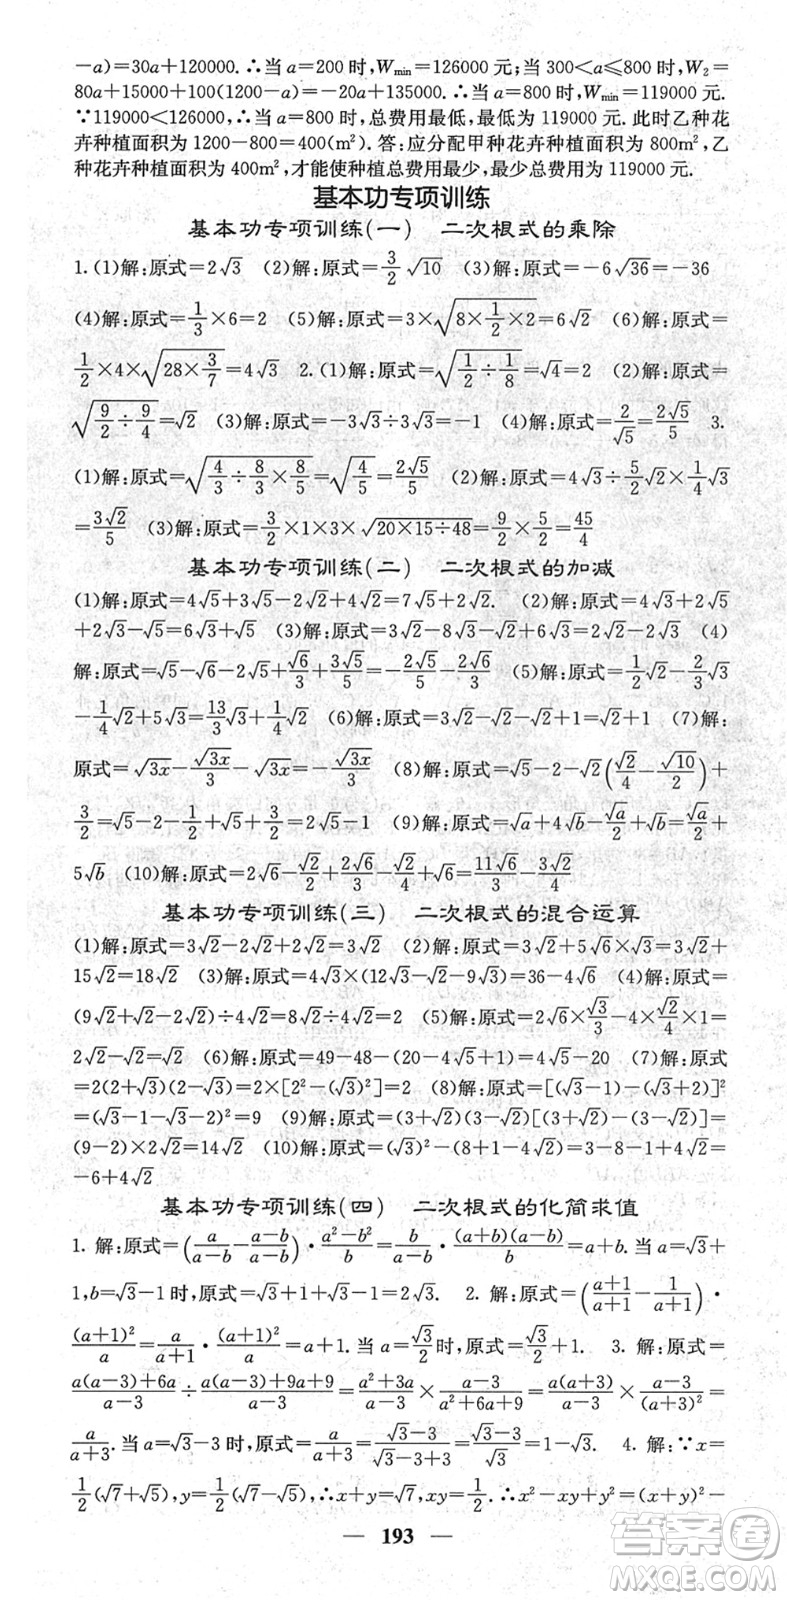 −a)=30a+120000.∴当a=200时,Wmin=126000元;当300<a≤800时,W₂=
80a+15000+100(1200−a)=−20a+135000.∴当a=800时,Wmin=119000元.
∵119000<126000,∴当a=800时,总费用最低,最低为119000元.此时乙种花
卉种植面积为1200−800=400(m²).答:应分配甲种花卉种植面积为800m²,乙
种花卉种植面积为400m²,才能使种植总费用最少,最少总费用为119000元.
基本功专项训练
基本功专项训练(一) 二次根式的乘除
1.(1)解:原式=2√3 (2)解:原式=3/2 √10 (3)解:原式=−6√36=−36
(4)解:原式=1/3×6=2 (5)解:原式=3×√(8×1/2×2)=6√2 (6)解:原式=
1/2×4×√(28×3/7)=4√3 2.(1)解:原式=√(1/2÷1/8)=√4=2 (2)解:原式=
√(9/2÷9/4)=√2 (3)解:原式=−3√3÷3√3=−1 (4)解:原式=2/√5=2√5/5 3.
(1)解:原式=√(4/3÷8/3×8/5)=√(4/5)=2√5/5 (2)解:原式=4√3÷5/2√2×1/4√3
=3√2/5 (3)解:原式=3/2×1×3×√(20×15÷48)=9/2×5/2=45/4
基本功专项训练(二) 二次根式的加减
(1)解:原式=4√5+3√5−2√2+4√2=7√5+2√2. (2)解:原式=4√3+2√5
+2√3−√5=6√3+√5 (3)解:原式=3√2−8√3−√2+6√3=2√2−2√3 (4)
解:原式=√5−√6−2√5+√6/3+3√5/5=−2√5/5−2√6/3 (5)解:原式=1/2√2−2/3√3
−1/4√2+5√3=13/3√3+√2/4 (6)解:原式=3√2−√2−√2+1=√2+1 (7)解:
原式=√3x−√3x/3−√3x=−√3x/3 (8)解:原式=√5−2−√2(√2/4−√10/2)+
3/2=√5−2−1/2+√5+3/2=2√5−1 (9)解:原式=√a+4√b−√a/2+√b=√a/2+
5√b (10)解:原式=2√6−√2/2+2√6/3−√2/4+√6=11√6/3−3√2/4
基本功专项训练(三) 二次根式的混合运算
(1)解:原式=3√2−2√2+2√2=3√2 (2)解:原式=3√2+5√6×√3=3√2+
15√2=18√2 (3)解:原式=4√3×(12√3−√2−9√3)=36−4√6 (4)解:原式=
(9√2+√2−2√2)÷4√2=8√2÷4√2=2 (5)解:原式=2√6×√3/3−4×√2/4×1=
2√2−√2=√2 (6)解:原式=49−48−(20−4√5+1)=4√5−20 (7)解:原式
=2(2+√3)(2−√3)=2×[2²−(√3)²]=2 (8)解:原式=[(√3−1)−(√3+2)]²
=(√3−1−√3−2)²=9 (9)解:原式=(3+√2)(3−√2)[(3+√2)−(3−√2)]=
(9−2)×2√2=14√2 (10)解:原式=(√3)²−(8+1−4√2)=3−8−1+4√2=
−6+4√2
基本功专项训练(四) 二次根式的化简求值
1. 解:原式=(a/(a−b)−(a−b)/(a−b))·(a²−b²)/b=b/(a−b)·(a+b)(a−b)/b=a+b.当a=√3+
1,b=√3−1时,原式=√3+1+√3−1=2√3. 2. 解:原式=((a+1)/(a+1)−1/(a+1))·
(a+1)²/a=a/(a+1)·(a+1)²/a=a+1.当a=√3/2时,原式=√3/2+1. 3. 解:原式=
(a(a−3)+6a)/(a−3)÷(a(a−3)+9a+9)/(a−3)=(a²+3a)/(a−3)×(a−3)/(a²+6a+9)=a(a+3)/(a−3)×(a−3)/(a+3)²=
a/(a+3).当a=√3−3时,原式=a/(a+3)=(√3−3)/(√3−3+3)=(√3−3)/√3=1−√3. 4. 解:∵x=
1/2(√7+√5),y=1/2(√7−√5),∴x+y=√7,xy=1/2.∴x²−xy+y²=(x+y)²−
— 193 —
答案圈
MXQE.COM